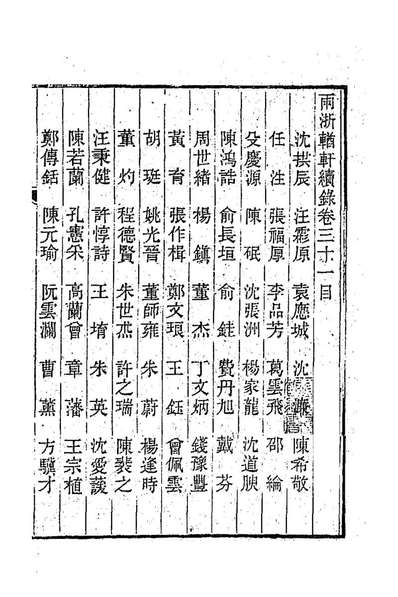 兩浙輶軒續錄卷三十一目
沈拱辰　汪霦原　袁應城　沈　濂　陳希敬
任　泩　張福原　李品芳　葛雲飛　邵　綸
殳慶源　陳　珉　沈張洲　楊家龍　沈道腴
陳鴻誥　俞長垣　俞　鉎　費丹旭　戴　芬
周世緒　楊　鎮　董　杰　丁文炳　錢豫豐
黃　育　張作楫　鄭文琅　王　鈺　曾佩雲
胡　珽　姚光晉　董師雍　朱　蔚　楊逢時
董　灼　程德賢　朱世杰　許之瑞　陳裴之
汪秉健　許惇詩　王　堉　朱　英　沈愛蓤
陳若蘭　孔憲采　高蘭曾　章　藩　王宗植
鄭傳銛　陳元瑜　阮雲瀾　曹　薰　方驥才